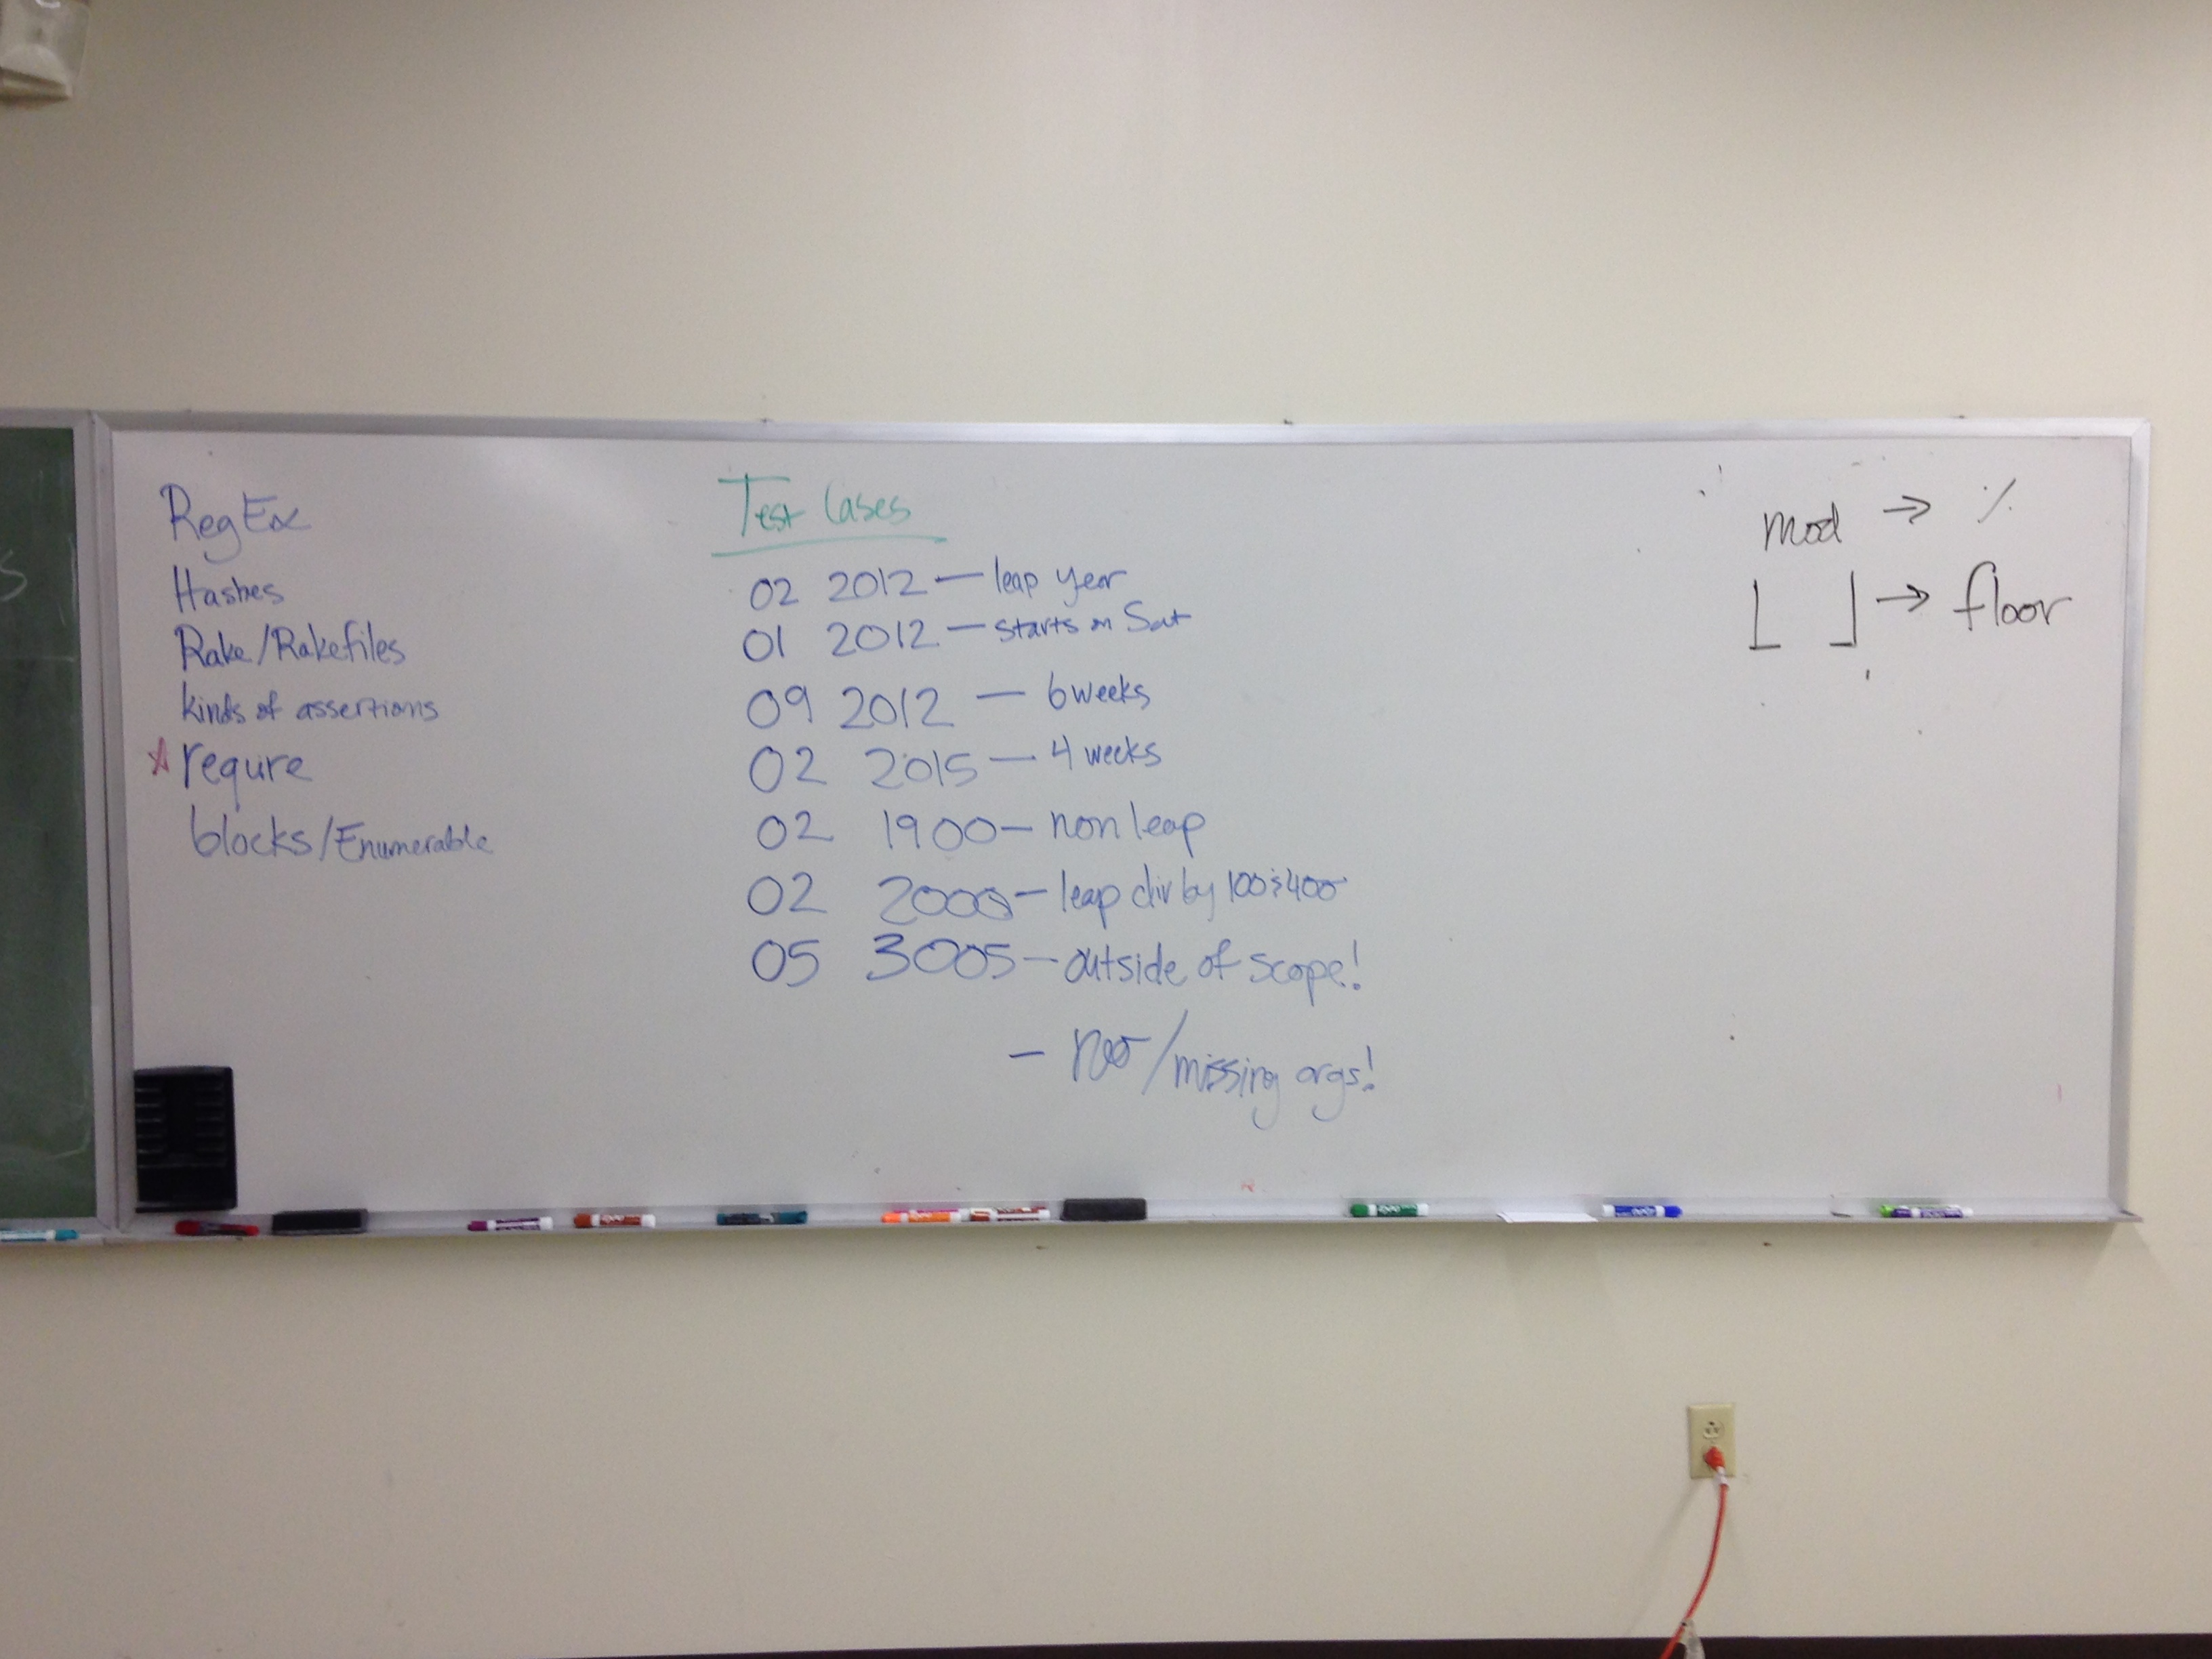 RegEx
Hashes
Rake/Rakefiles
kinds of assertions
requre
blocks/Enumerable
Test Cases
02 2012 — leap year
01 2012 — starts on Sat
09 2012 — 6 weeks
02 2015 — 4 weeks
02 1900 — non leap
02 2000 — leap div by 100 & 400
05 3005 — outside of scope!
— /missing args!
mod → %
⌊ ⌋ → floor